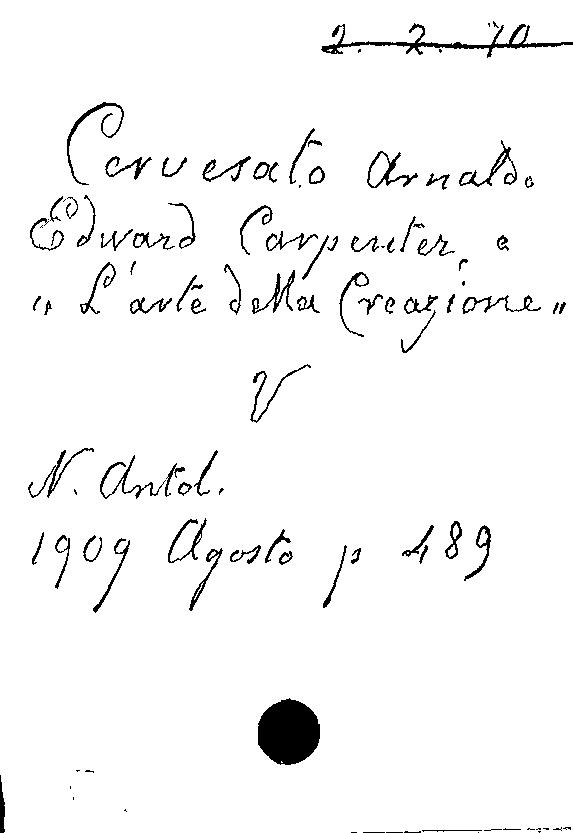 2. 2. 70
Cervesato Arnaldo
Edward Carpenter e
"L'arte della Creazione"
V
N. Antol.
1909 Agosto p 489